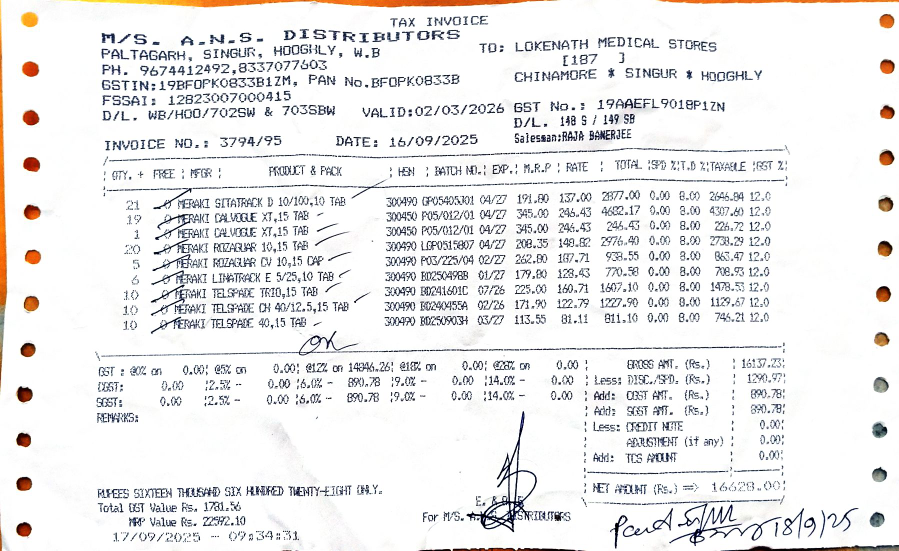 TAX INVOICE
M/S. A.N.S. DISTRIBUTORS
PALTAGARH, SINGUR, HOOGHLY, W.B
PH. 9674412492,8337077603
GSTIN:19BFOPK0833B1ZM, PAN No.BFOPK0833B
FSSAI: 12823007000415
D/L. WB/HOO/702SW & 703SBW VALID:02/03/2026
TO: LOKENATH MEDICAL STORES
[187 ]
CHINAMORE * SINGUR * HOOGHLY
GST No.: 19AAEFL9018P1ZN
D/L. 148 S / 149 SB
Salesman:RAJA BANERJEE
INVOICE NO.: 3794/95 DATE: 16/09/2025
QTY. + FREE | MFGR | PRODUCT & PACK | HSN | BATCH NO.| EXP.| M.R.P | RATE | TOTAL |SPD %|T.D %|TAXABLE |GST %
21 0 MERAKI SITATRACK D 10/100,10 TAB 300490 GP05405J01 04/27 191.80 137.00 2877.00 0.00 8.00 2646.84 12.0
19 0 MERAKI CALVOGUE XT,15 TAB 300450 P05/012/01 04/27 345.00 246.43 4682.17 0.00 8.00 4307.60 12.0
1 0 MERAKI CALVOGUE XT,15 TAB 300450 P05/012/01 04/27 345.00 246.43 246.43 0.00 8.00 226.72 12.0
20 0 MERAKI ROZAGUAR 10,15 TAB 300490 LGP0515807 04/27 208.35 148.82 2976.40 0.00 8.00 2738.29 12.0
5 0 MERAKI ROZAGUAR CV 10,15 CAP 300490 P03/225/04 02/27 262.80 187.71 938.55 0.00 8.00 863.47 12.0
6 0 MERAKI LINATRACK E 5/25,10 TAB 300490 BD250498B 01/27 179.80 128.43 770.58 0.00 8.00 708.93 12.0
10 0 MERAKI TELSPADE TRIO,15 TAB 300490 BD241601C 07/26 225.00 160.71 1607.10 0.00 8.00 1478.53 12.0
10 0 MERAKI TELSPADE CH 40/12.5,15 TAB 300490 BD240455A 02/26 171.90 122.79 1227.90 0.00 8.00 1129.67 12.0
10 0 MERAKI TELSPADE 40,15 TAB 300490 BD250903H 03/27 113.55 81.11 811.10 0.00 8.00 746.21 12.0
OK
GST : @0% on 0.00| @5% on 0.00| @12% on 14846.26| @18% on 0.00| @28% on 0.00
CGST: 0.00 |2.5% - 0.00 |6.0% - 890.78 |9.0% - 0.00 |14.0% - 0.00
SGST: 0.00 |2.5% - 0.00 |6.0% - 890.78 |9.0% - 0.00 |14.0% - 0.00
REMARKS:
GROSS AMT. (Rs.) | 16137.23|
Less: DISC./SPD. (Rs.) | 1290.97|
Add: CGST AMT. (Rs.) | 890.78|
Add: SGST AMT. (Rs.) | 890.78|
Less: CREDIT NOTE 0.00|
ADJUSTMENT (if any) | 0.00|
Add: TCS AMOUNT 0.00|
NET AMOUNT (Rs.) ==> 16628.00|
RUPEES SIXTEEN THOUSAND SIX HUNDRED TWENTY-EIGHT ONLY.
Total GST Value Rs. 1781.56
MRP Value Rs. 22592.10
17/09/2025 - 09:34:31
E. & O.E
For M/S. A.N.S. DISTRIBUTORS
18/9/25